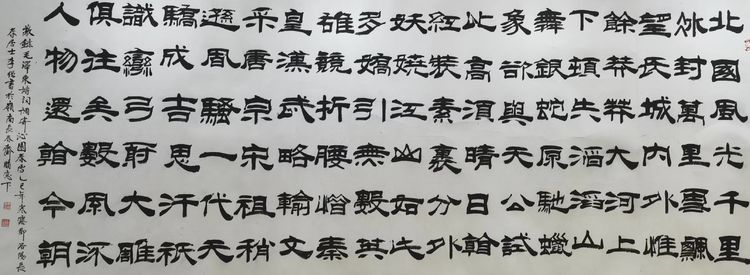 北國風光千里
冰封萬里雪飄
望長城內外惟
餘莽莽大河上
下頓失滔滔山
舞銀蛇原馳蠟
象欲與天公試
比高須晴日看
紅裝素裹分外
妖嬈江山如此
多嬌引無數英
雄競折腰惜秦
皇漢武略輸文
采唐宗宋祖稍
遜風騷一代天
驕成吉思汗祇
識彎弓射大雕
俱往矣數風流
人物還看今朝
敬錄毛澤東詩詞沁園春雪乙巳年大寒節洛陽長
春居士李書於嶺南長春齋下